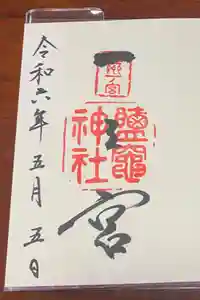 一之宮
鹽竈
神社
令和六年五月五日